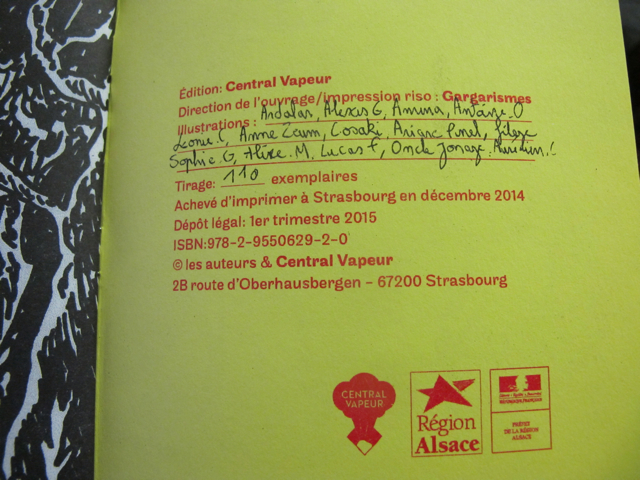 Édition: Central Vapeur
Direction de l'ouvrage/impression riso : Gargarismes
Illustrations : Ardalan, Alexis G, Amina, Antoine.O
Léonie.C, Anne Zeum, Cosaki Ariane Pinel,
Sophie.G, Alixe.M, Lucas F, Oncle Jonaze.
Tirage: 110 exemplaires
Achevé d'imprimer à Strasbourg en décembre 2014
Dépôt légal: 1er trimestre 2015
ISBN:978-2-9550629-2-0
© les auteurs & Central Vapeur
2B route d'Oberhausbergen – 67200 Strasbourg
CENTRAL
VAPEUR
Région
Alsace
Liberté • Égalité • Fraternité
RÉPUBLIQUE FRANÇAISE
PRÉFET
DE LA RÉGION
ALSACE